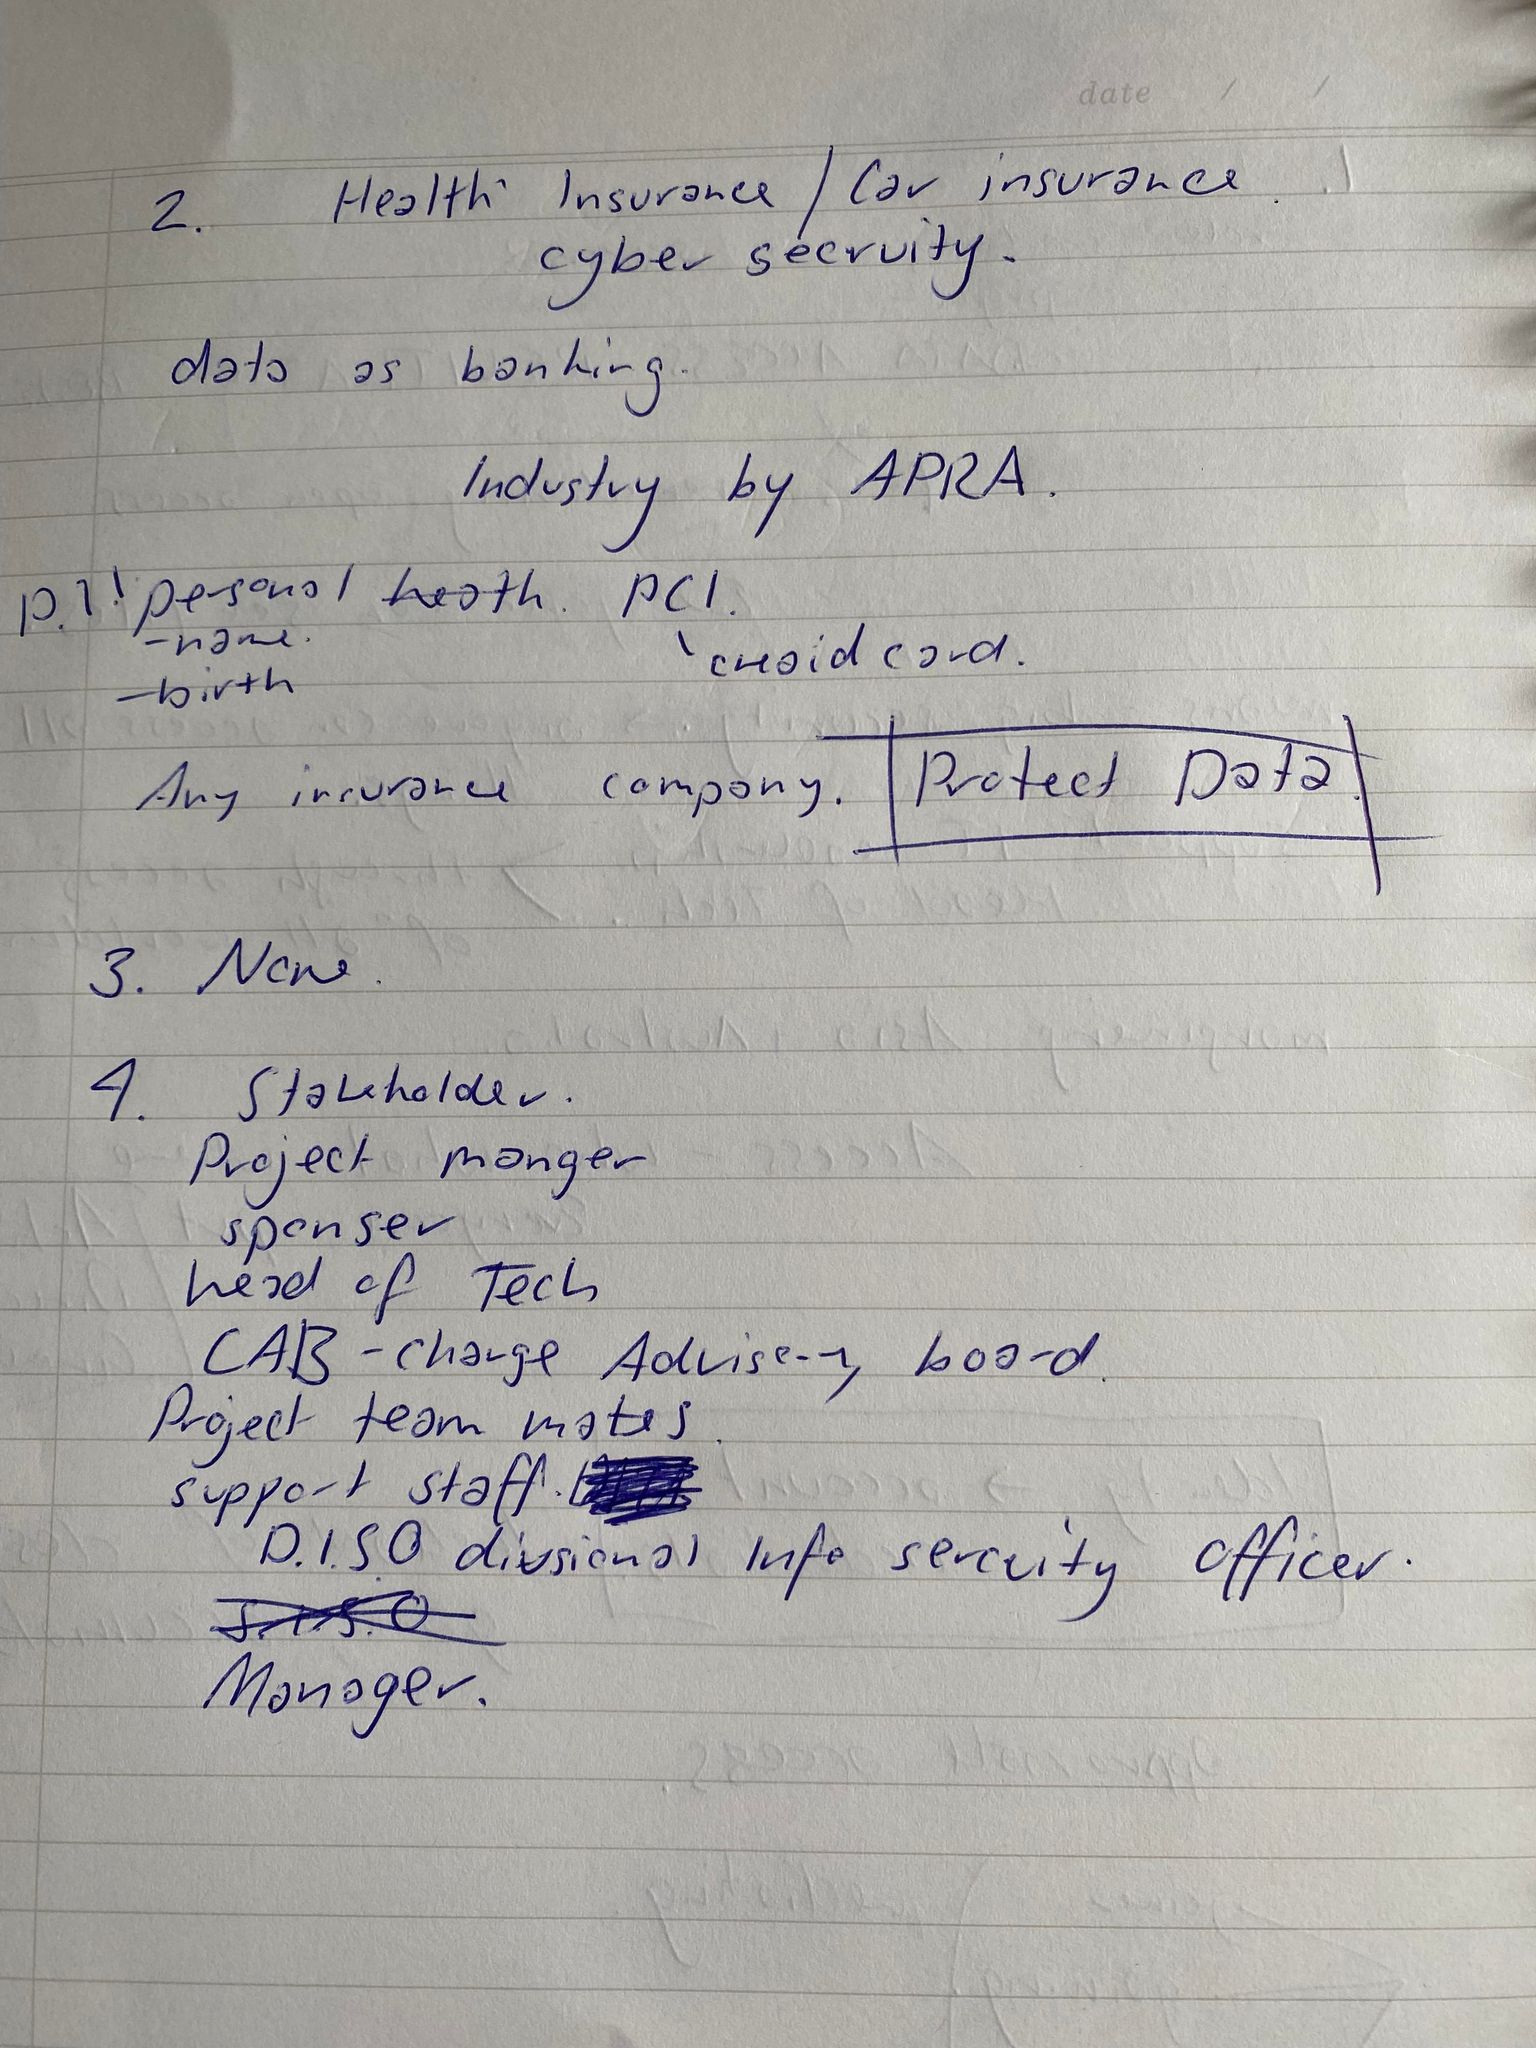 date / /
2. Health Insurance / Car insurance
cyber secruity.
data as banking.
Industry by APRA.
P.I! personal heath. PCI.
-name.
creaid card.
-birth
Any insurance company. Protect Data.
3. None.
4. Stakeholder.
Project manger
sponser
head of Tech
CAB - change Advisory board.
Project team mates.
support staff.
D.I.S.O divsional Info sercuity officer.
Manager.